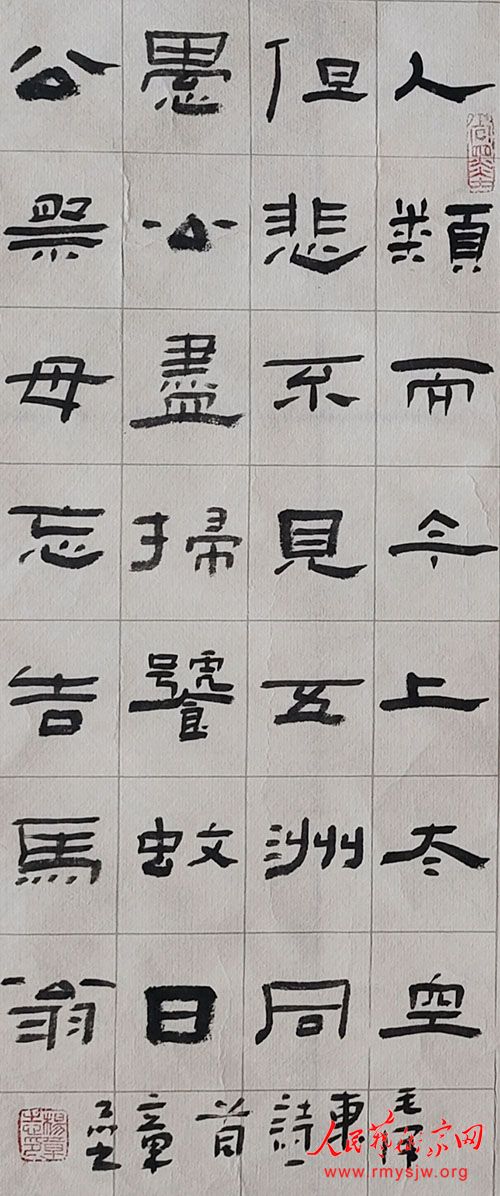 人類而今上太空
但悲不見五洲同
愚公盡掃饕蚊日
公祭毋忘告馬翁
毛澤東詩一首
人民藝術家网
www.rmysjw.org